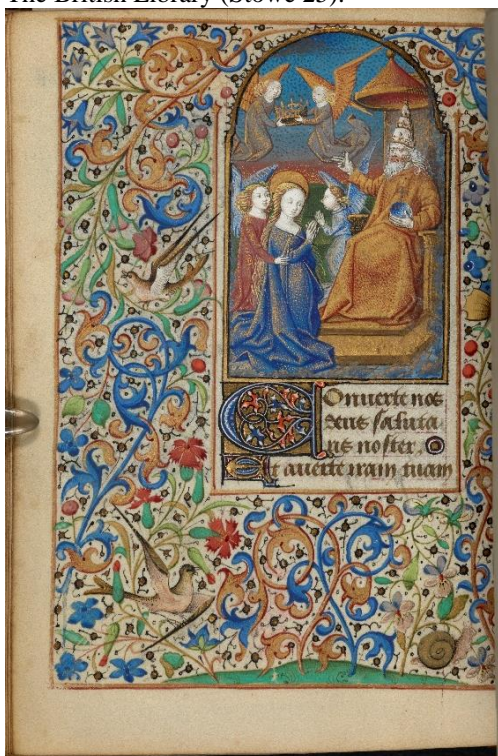 The British Library (Stowe 25).
Conuerte nos
deus saluta
ris noster.
Et auerte iram tuam